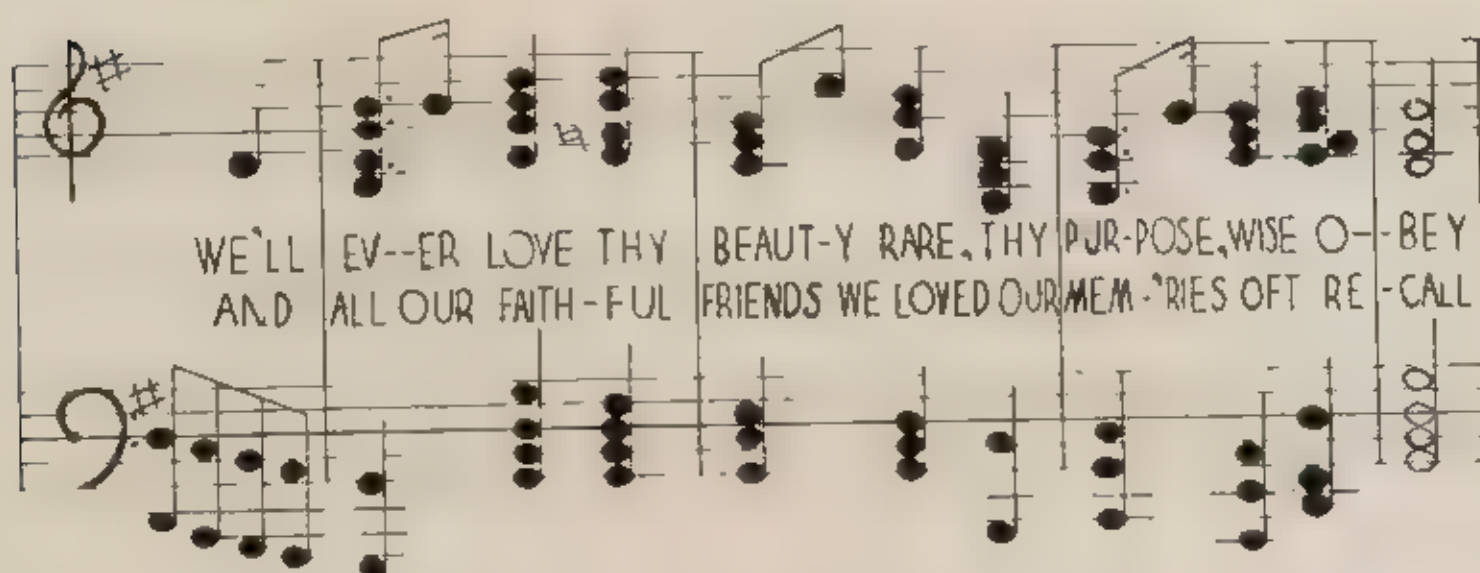 WE'LL EV--ER LOVE THY BEAUT-Y RARE, THY PUR-POSE, WISE O--BEY
AND ALL OUR FAITH-FUL FRIENDS WE LOVED OUR MEM-'RIES OFT RE-CALL